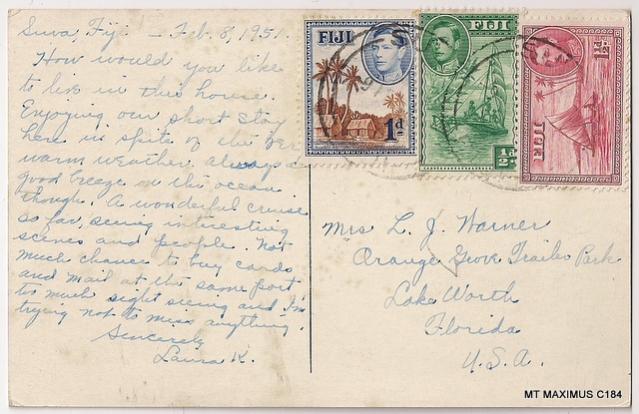 Suva, Fiji – Feb. 8, 1951.
How would you like
to live in this house.
Enjoying our short stay
here in spite of the
warm weather. always a
good breeze on the ocean
though. A wonderful cruise
so far, seeing interesting
scenes and people. Not
much chance to buy cards
and mail at the same port
to much sight seeing and I'm
trying not to miss anything.
Sincerely
Laura K.
FIJI
1d
FIJI
½d
FIJI
1½d
Mrs L. J. Warner
Orange Grove Trailer Park
Lake Worth
Florida
U.S.A.
MT MAXIMUS C184